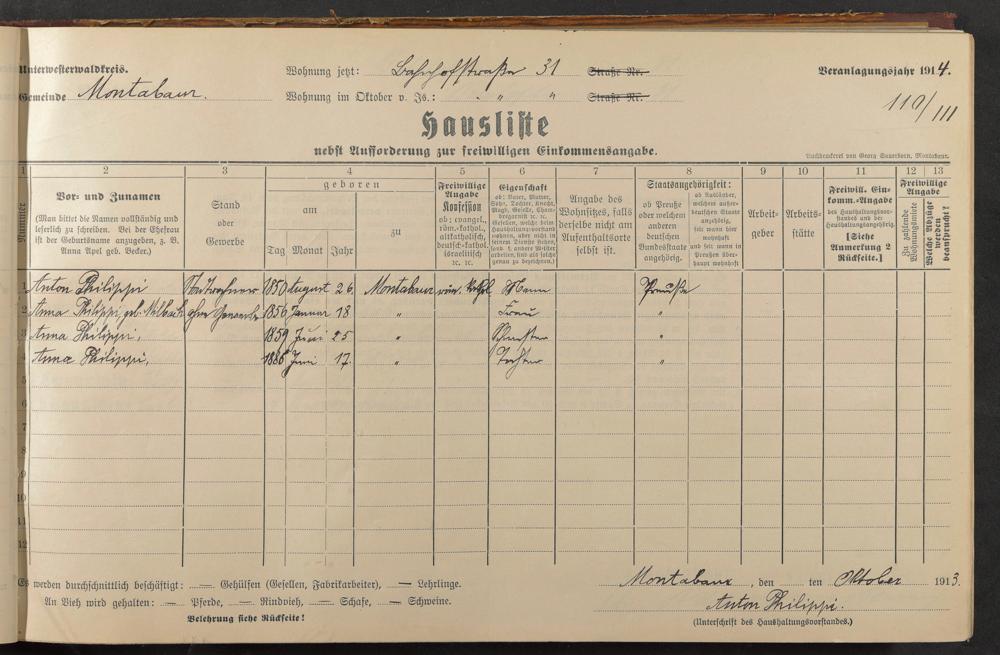 Unterwesterwaldkreis.
Wohnung jetzt: Bahnhofstraße 31 Straße Nr.
Veranlagungsjahr 1914.
Gemeinde Montabaur.
Wohnung im Oktober v. Js.: " " " Straße Nr.
110/III
Hausliste
nebst Aufforderung zur freiwilligen Einkommensangabe.
Buchdruckerei von Georg Sauerborn, Montabaur.
1 2 3 4 5 6 7 8 9 10 11 12 13
Nummer
Vor- und Zunamen
(Man bittet die Namen vollständig und
leserlich zu schreiben. Bei der Ehefrau
ist der Geburtsname anzugeben, z. B.
Anna Apel geb. Becker.)
Stand
oder
Gewerbe
geboren
am
Tag Monat Jahr
zu
Freiwillige
Angabe
Konfession
ob: evangel.,
röm.-kathol.,
altkatholisch,
deutsch-kathol.
israelinisch
2c. 2c.
Eigenschaft
Angabe des
Wohnsitzes, falls
derselbe nicht am
Aufenthaltsorte
selbst ist.
Staatsangehörigkeit:
ob Preuße
oder welchem
anderen
deutschen
Bundesstaate
angehörig.
ob Ausländer,
welchem außer-
deutschen Staate
angehörig,
seit wann hier
wohnhaft
und seit wann in
Preußen über-
haupt wohnhaft
Arbeit-
geber
Arbeits-
stätte
Freiwill. Ein-
komm.-Angabe
des Haushaltungsvor-
standes und der
Haushaltungsangehörig.
[Siehe
Anmerkung 2
Rückseite.]
Freiwillige
Angabe
Zu zahlende
Wohnungsmiete
Welche Abzüge
werden
beansprucht?
1 Anton Philippi 1850 August 26. Montabaur röm. Kathol. Mann Preuße
2 Anna Philippi, geb. ohne Gewerbe 1856 Januar 18 " Frau "
3 Anna Philippi, 1859 Juni 25 " Schwester "
4 Anna Philippi, Juni 17. " Tochter "
5
6
7
8
9
10
11
12
Es werden durchschnittlich beschäftigt: — Gehülfen (Gesellen, Fabrikarbeiter), — Lehrlinge.
An Vieh wird gehalten: — Pferde, — Rindvieh, — Schafe, — Schweine.
Belehrung siehe Rückseite!
Montabaur, den ten Oktober 1913.
Anton Philippi.
(Unterschrift des Haushaltungsvorstandes.)